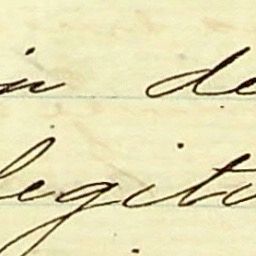 in de
legiti